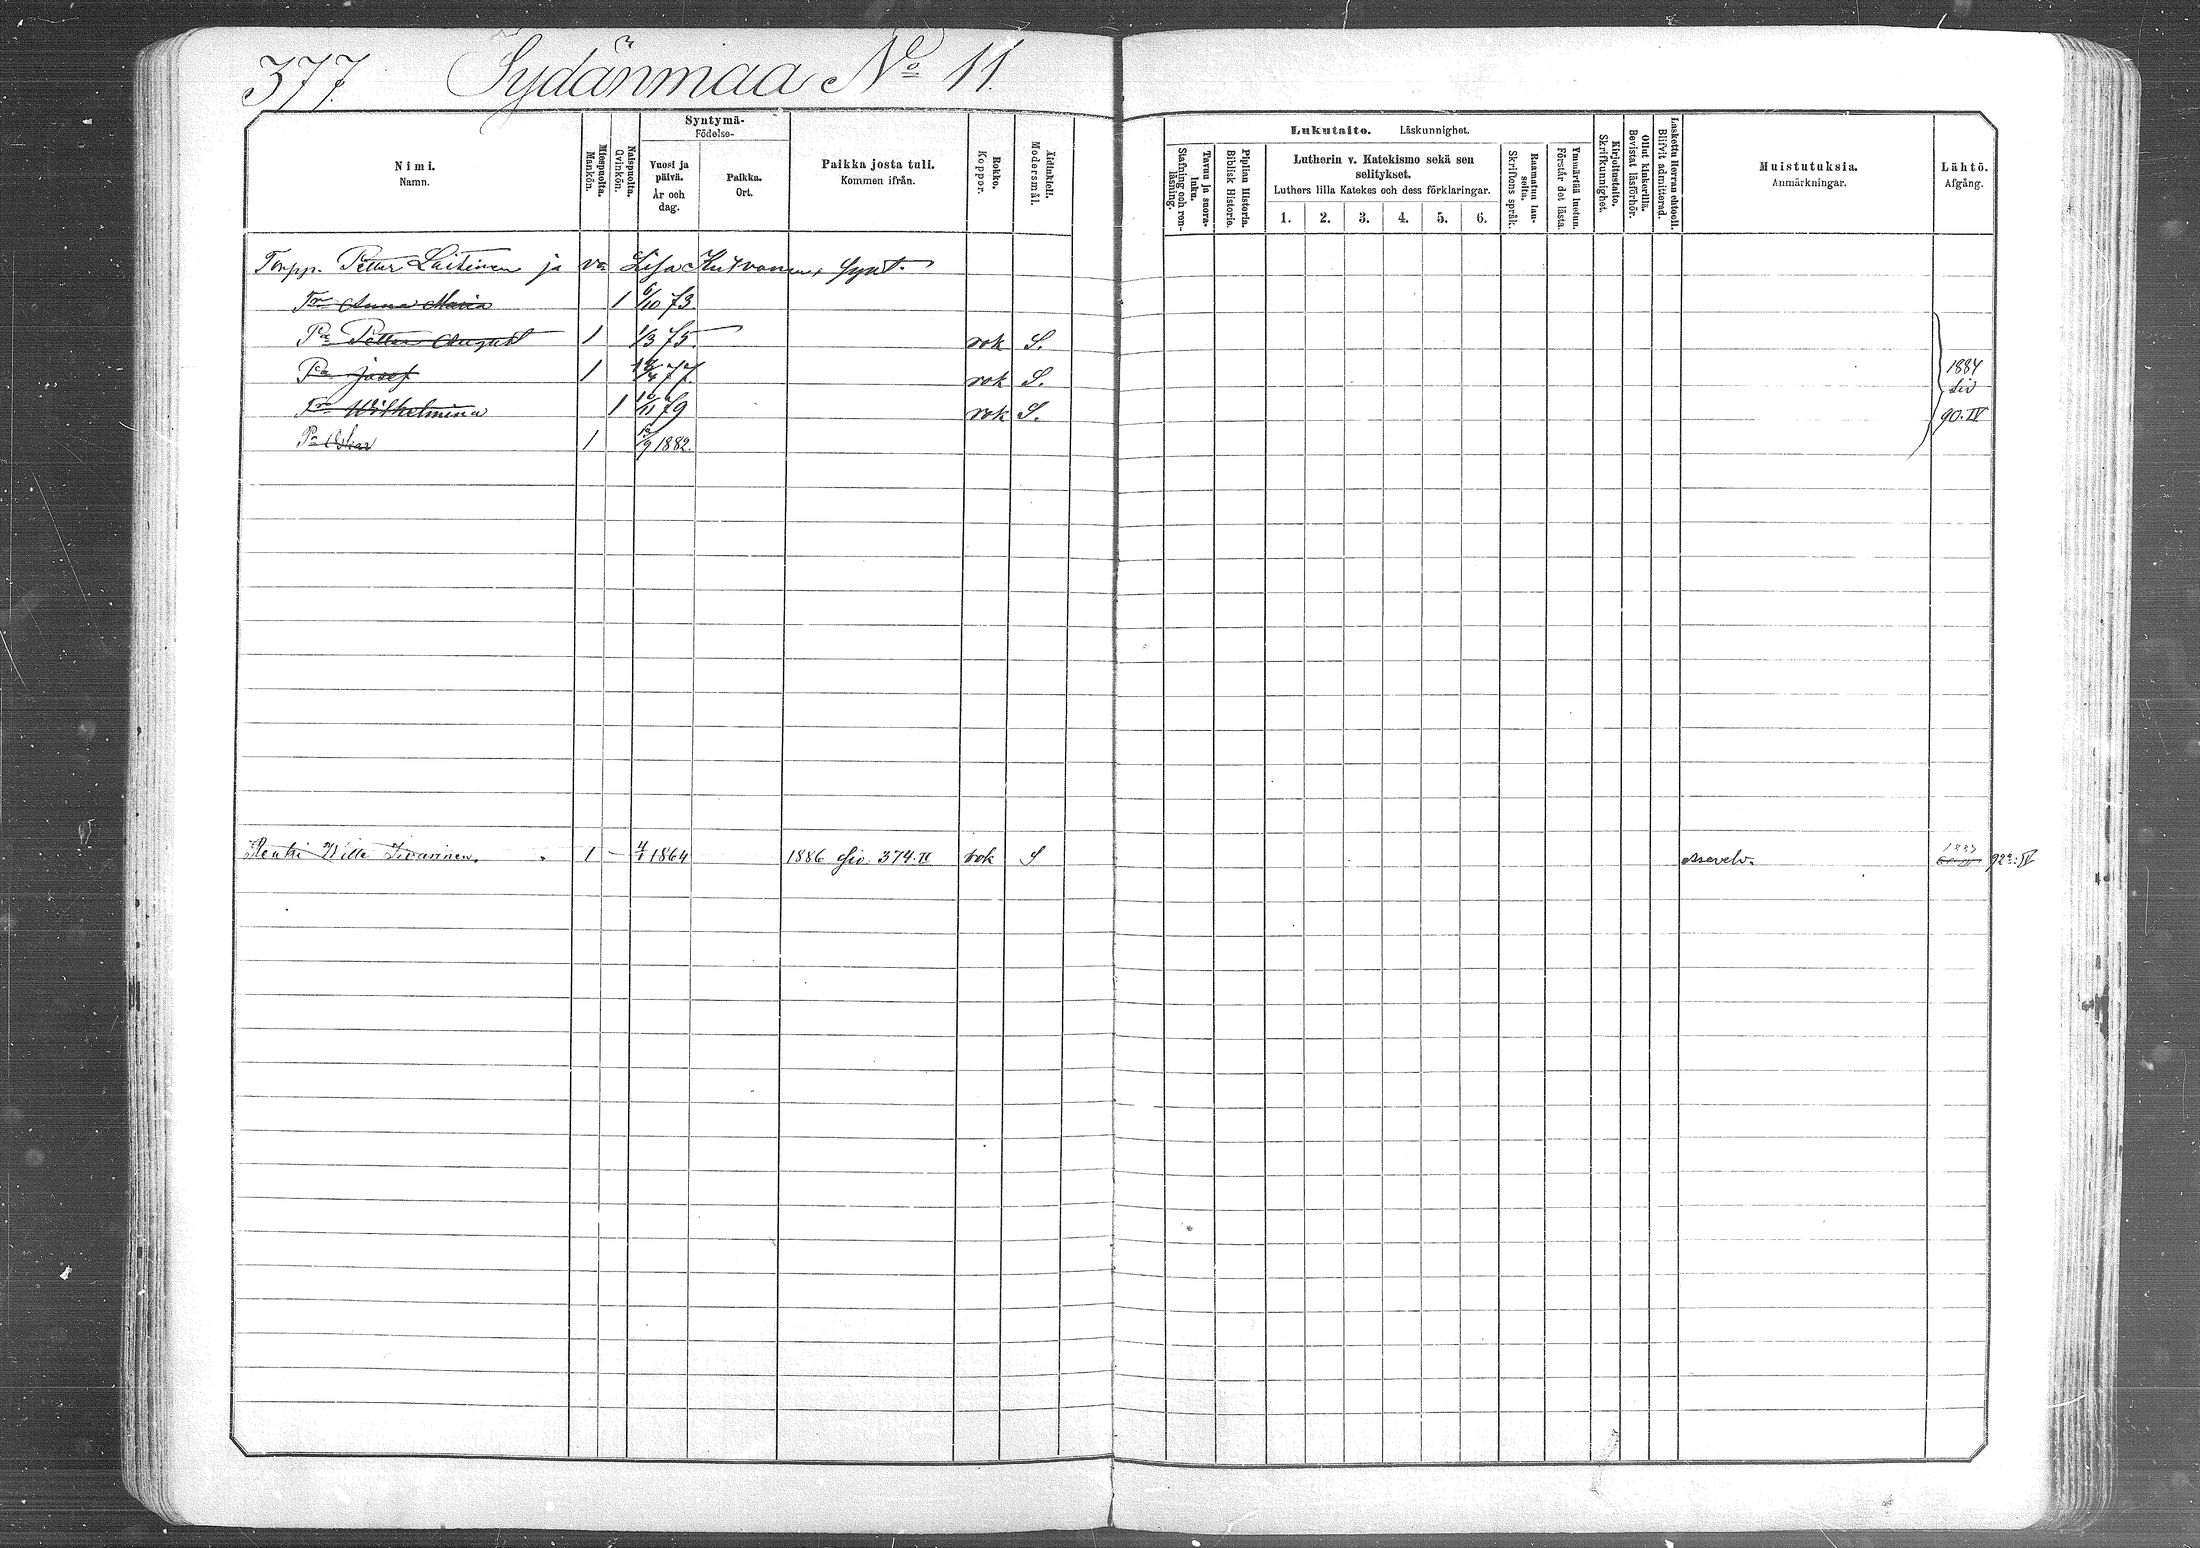 377. Sydänmaa No 11.
Syntymä-
Födelse-
Nimi.
Namn.
Miespuolta.
Mankön.
Naispuolta.
Qvinkön.
Vuosi ja päivä.
År och dag.
Paikka.
Ort.
Paikka josta tuli.
Kommen ifrån.
Rokko.
Koppor.
Äidinkieli.
Modersmål.
Lukutaito. Läskunnighet.
Tavuu ja suora-luku.
Stafning och ren-läsning.
Piplian Historia.
Biblisk Historie.
Lutherin v. Katekismo sekä sen
selitykset.
Luthers lilla Katekes och dess förklaringar.
1. 2. 3. 4. 5. 6.
Raamatun lau-seita.
Skriftens språk.
Ymmärtää luetun.
Förstår det lästa.
Kirjoitustaito.
Skrifkunnighet.
Ollut kinkerillä.
Bevistat läsförhör.
Laskettu Herran ehtooll.
Blifvit admitterad.
Muistutuksia.
Anmärkningar.
Lähtö.
Afgång.
Torpp. Petter Laitinen ja vo Lisa Kutvonen, synt.
Tr Anna Maria 1 6/10 73.
Pa Petter August 1 1/3 75 rok S.
Pa Josef 1 /4 77. rok S. 1884
Tr Wilhelmina 1 /11 79 rok S. siv 90.IV
Pa Oskar 1 /9 1882.
Renki Wille Iivarinen. 1 - 4/1 1864 1886 siv. 374.II rok S 92a:IV